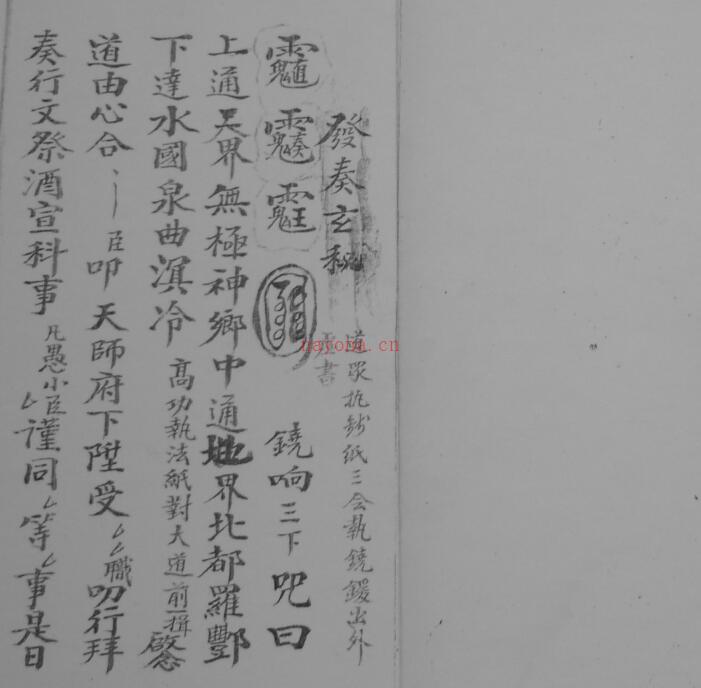 發奏玄秘
道眾抗鈸紙三会執鐃鍰出外
虛書
鐃响三下咒曰
上通旲界無極神鄉中通地界北都羅酆
下達水國泉曲溟冷 高功執法紙對大道前一揖 啟念
道由心合、丨臣叩天師府下陞受厶厶職叨行拜
奏行文祭酒宣科事 凡愚小臣厶謹同厶等厶事是日
nayona.cn